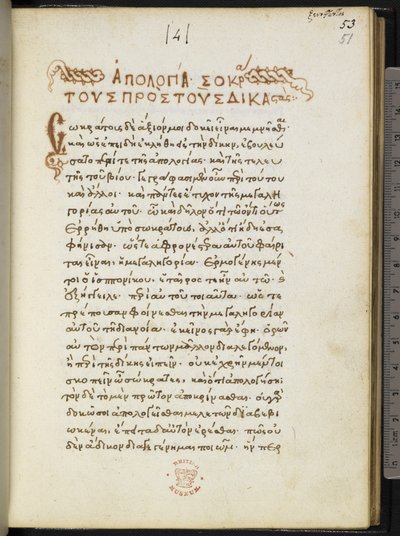 53
51
|4|
ἀπολογία σωκρά
τους πρὸς τοὺς δικασάς:
Σωκράτους δὲ ἄξιόν μοι δοκεῖ εἶναι μεμνῆσθαι
καὶ ὡς ἐπειδὴ ἐκλήθη εἰς τὴν δίκην, ἐβουλεύ
σατο περί τε τῆς ἀπολογίας καὶ τῆς τελευ
τῆς τοῦ βίου. γεγράφασι μὲν οὖν περὶ τούτου
καὶ ἄλλοι καὶ πάντες ἔτυχον τῆς μεγαλη
γορίας αὐτοῦ. ᾧ καὶ δῆλον ὅτι τῷ ὄντι οὕτως
ἐρρήθη ὑπὸ σωκράτους. ἀλλ' ὅτι ἤδη
ἑρμογένης μέν
τοι ὁ ἱππονίκου ἑταῖρός τε ἦν αὐτῷ
ἐξήγγειλε περὶ αὐτοῦ τοιαῦτα. ὥστε
πρέπουσαν φαίνεσθαι τὴν μεγαληγορίαν
αὐτοῦ τῇ διανοίᾳ. ἐκεῖνος γὰρ ἔφη ὁρῶν
αὐτὸν περὶ πάντων μᾶλλον διαλεγόμενον
ἢ περὶ τῆς δίκης εἰπεῖν. οὐκ ἐχρῆν μέντοι
σκοπεῖν ὦ σώκρατες, καὶ ὅ τι ἀπολογήσῃ;
τὸν δὲ τὸ μὲν πρῶτον ἀποκρίνασθαι. οὐ γὰρ
δοκῶ σοι ἀπολογεῖσθαι μελετῶν διαβεβι
ωκέναι; ἐπεὶ δ' αὐτὸν ἐρέσθαι. πῶς; ὅτι οὐ
δὲν ἄδικον διαγεγένημαι ποιῶν. ἥνπερ
BRITISH
MUSEUM